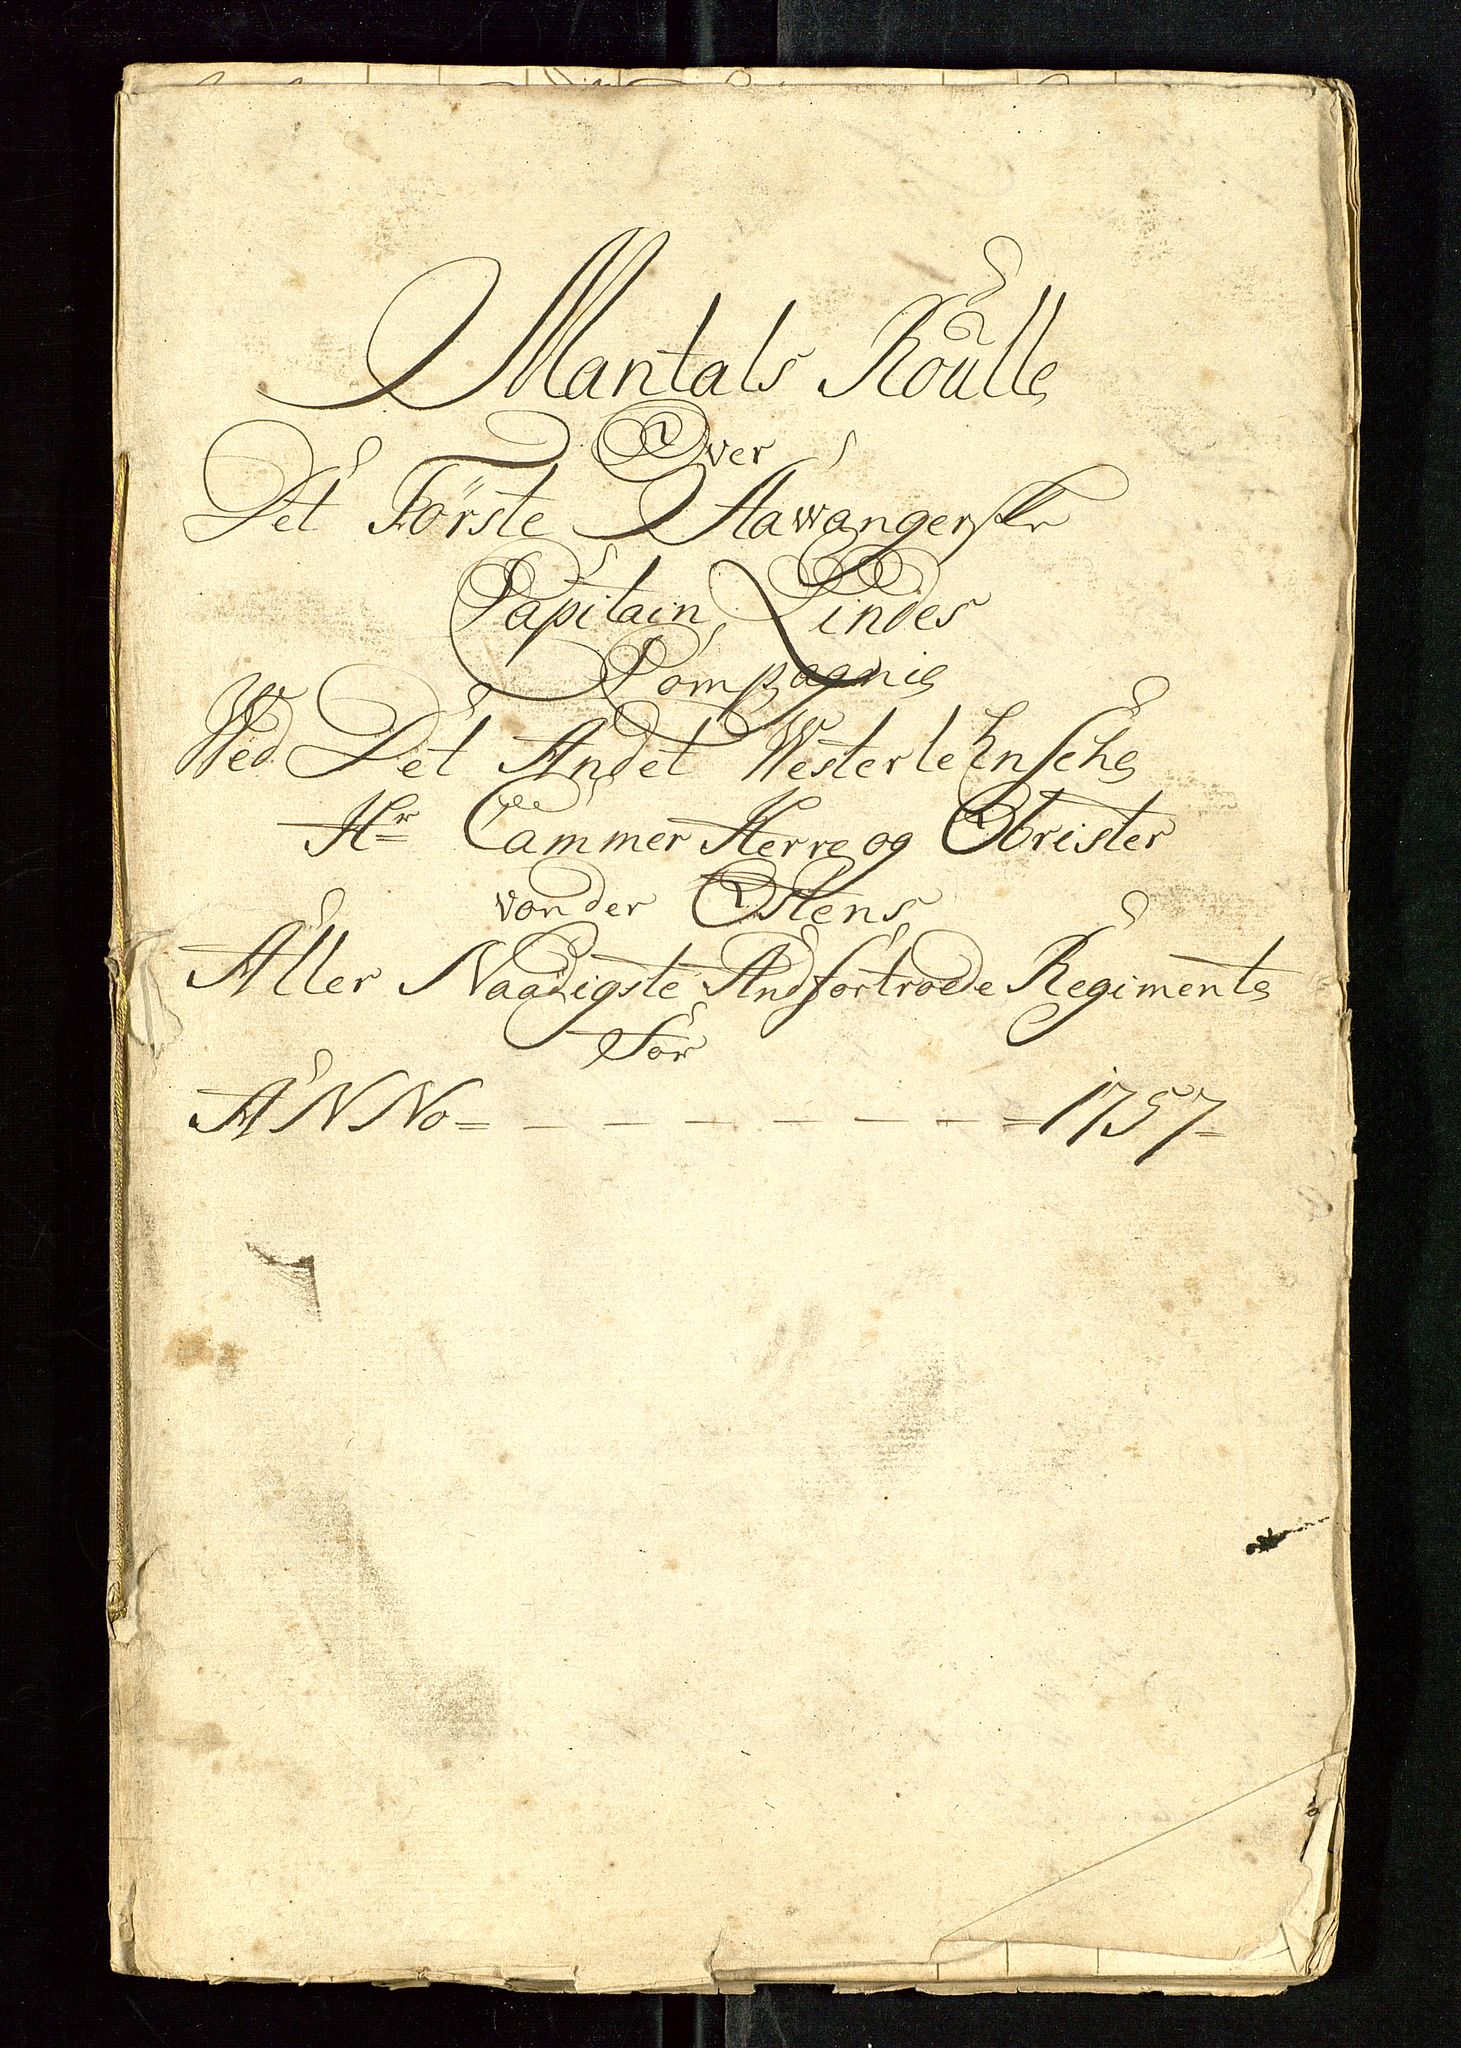 Mantals Roulle
Over
Det Første Stawangerske
Capitain Lindes
Compagnie
Wed Det Andet Westerlehnsche
Hr Cammer Herre og Obrister
von der Ostens
Aller Naadigste Andfortroede Regimente
For
ANNo = - - - - - - - - - = 1757 =